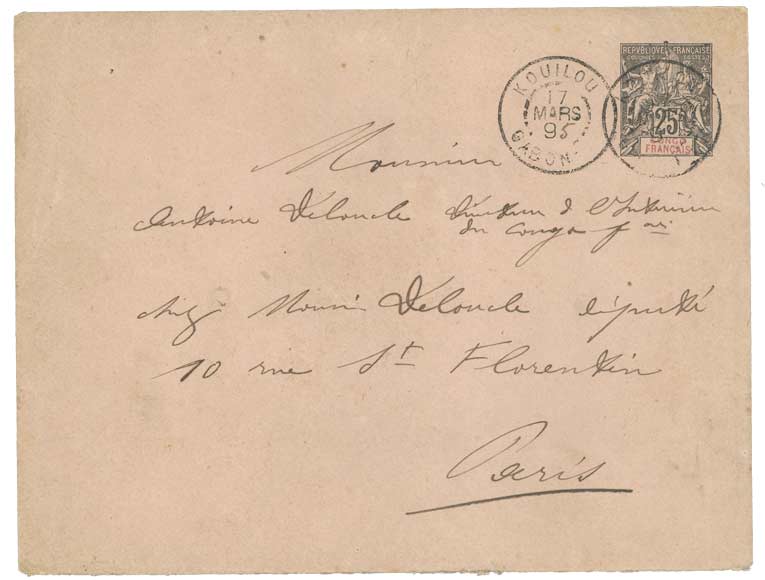 REPVBLIQVE FRANÇAISE
COLONIES POSTES
25
CONGO
FRANÇAIS
KOUILOU
17
MARS
95
GABON
Monsieur
Antoine Deloncle Directeur de l'Intérieur
du Congo fçais
chez Monsieur Deloncle député
10 rue St Florentin
Paris